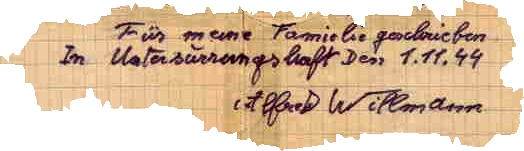 Für meine Familie geschrieben
In Untersurrungshaft Den 1.11.44
Alfred Willmann